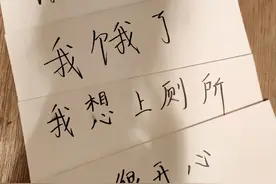 我饿了
我想上厕所
很开心